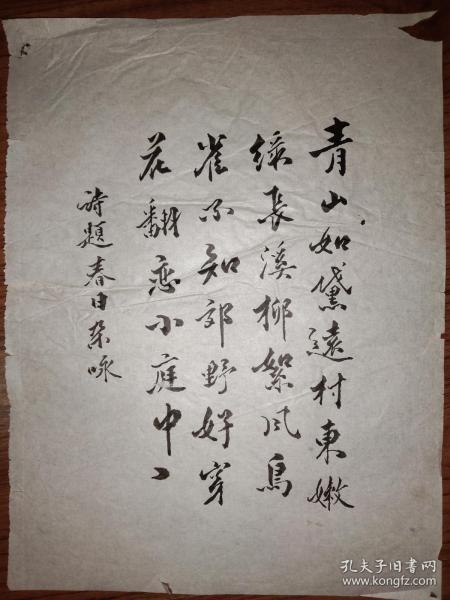 青山如黛遠村東嫩
綠長溪柳絮风鳥
雀不知郊野好穿
花翻恋小庭中
詩題春日杂咏
孔夫子旧书网
www.kongfz.com